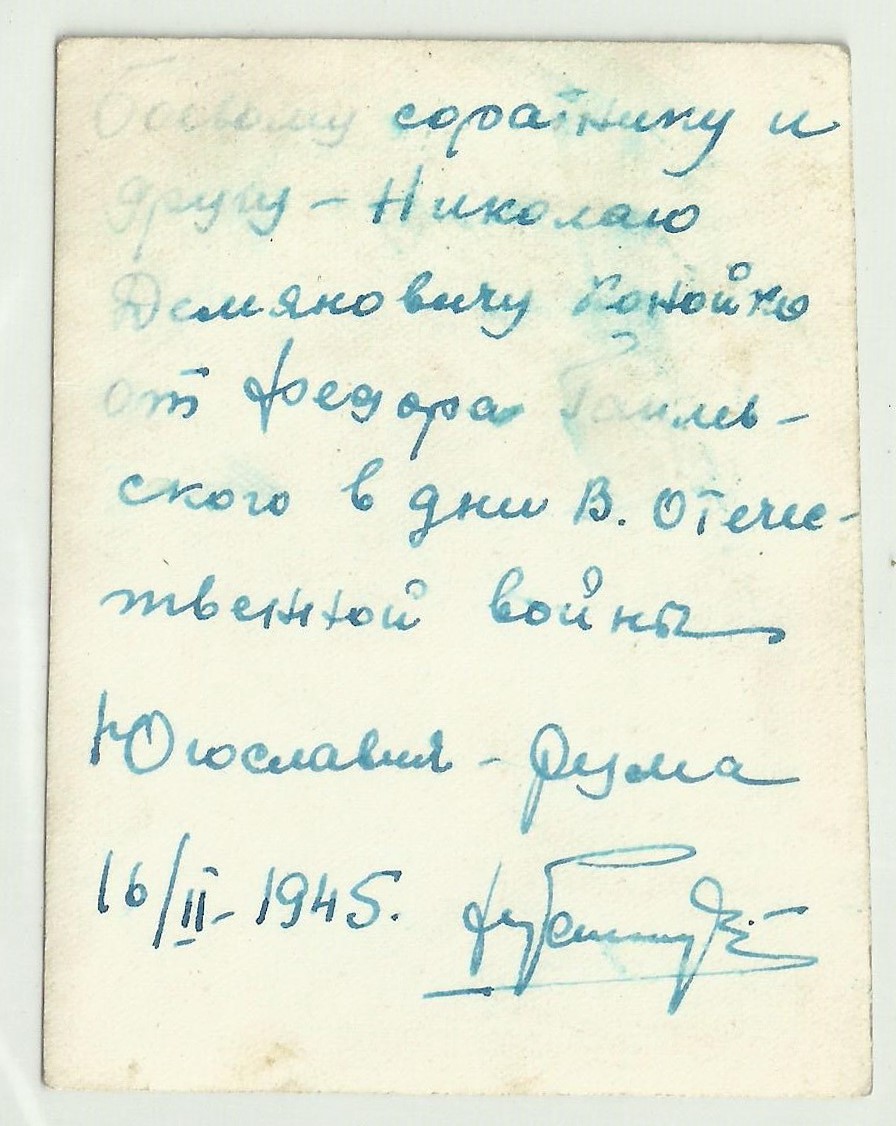 Боевому соратнику и
другу - Николаю
Демяновичу
от Федора
ского в дни В. Отече-
ственной войны
Югославия - Рума
16/II - 1945.